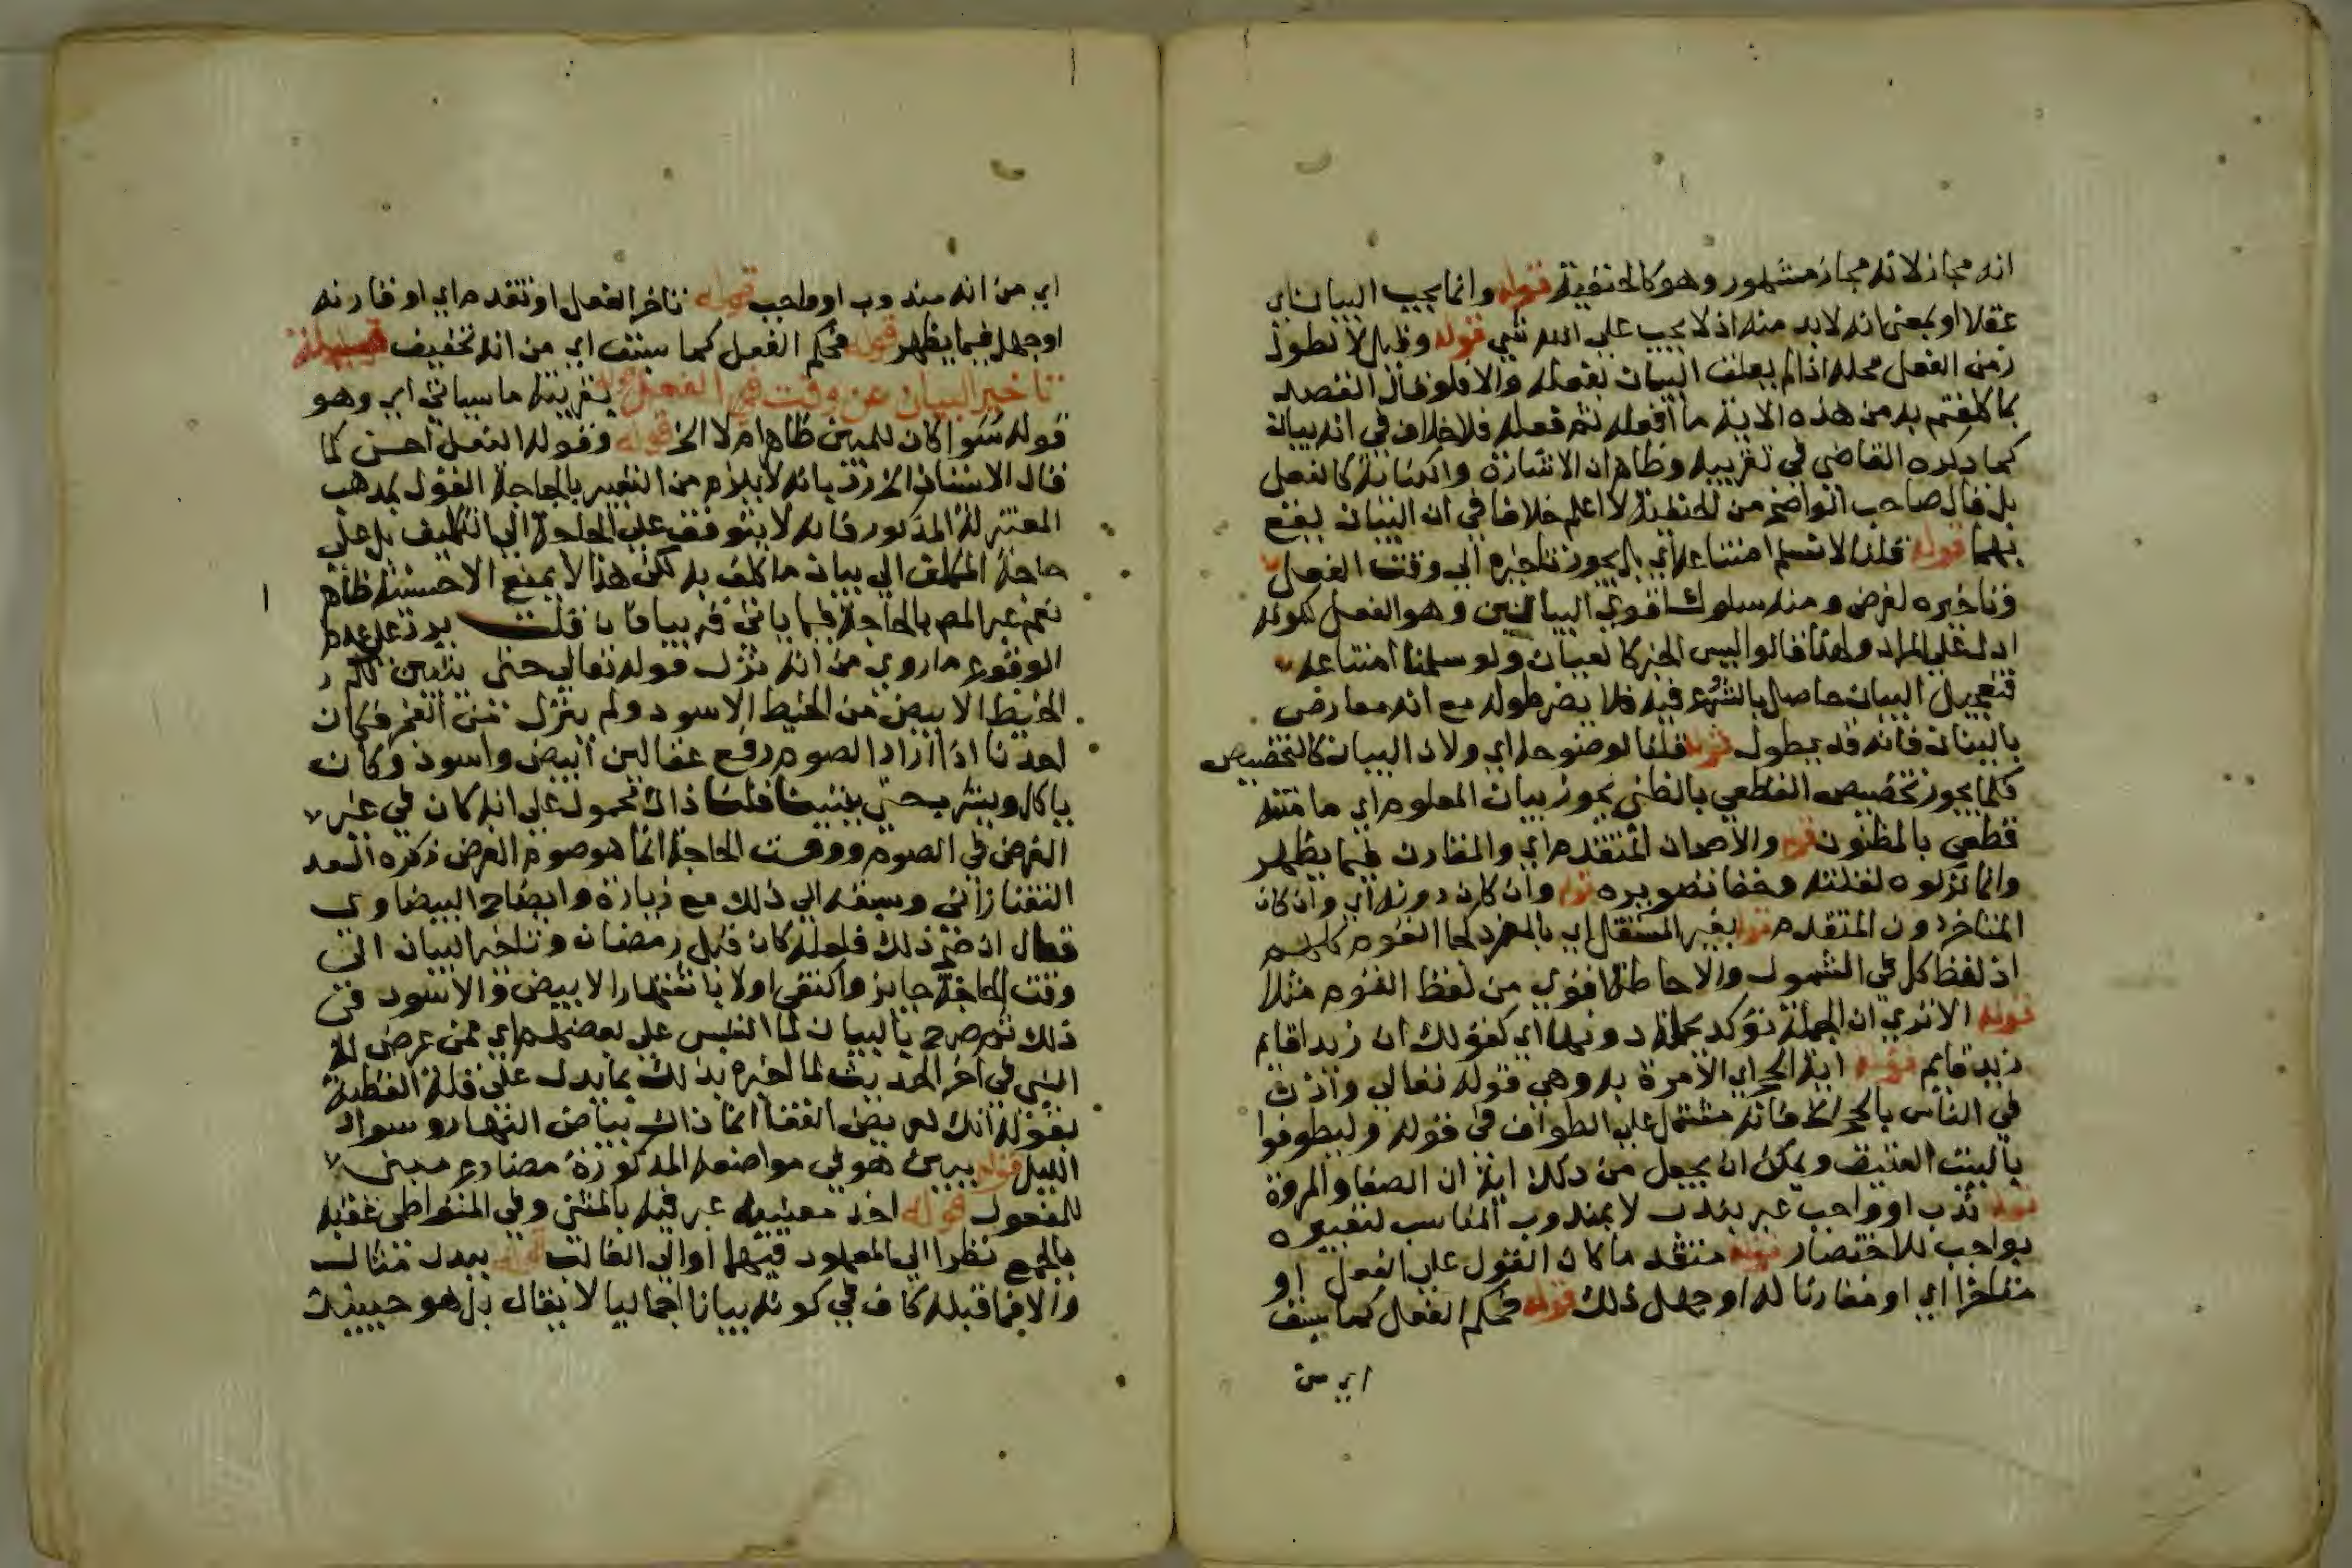 انه مجاز لانه مجاز مشهور وهو كالحقيقة قوله وانما يجب البيان اي
عقلا او بمعنى انه لابد منه اذ لا يجب على الله شي قوله وقيل لا لطول
زمن الفعل محله اذا لم يعلق البيان بفعله والا فلو قال القصد
بما كلفتم به من هذه الاية ما افعله ثم فعله فلا خلاف في انه بيانه
كما ذكره القاضي في تقريبه وظاهر ان الاشارة والكتابة كالفعل
بل قال صاحب الواضح من الحنفية لا اعلم خلافا في ان البيان يقع
بهما قوله قلنا لا نسلم امتناعه اي بل يجوز تاخيره الى وقت الفعل
وتاخيره لغرض ومنه سلوك اقوى البيانين وهو الفعل لكونه
ادل على المراد ولهذا قالوا ليس الخبر كالعيان ولو سلمنا امتناعه
فتعجيل البيان حاصل بالشروع فيه فلا يضر طوله مع انه معارض
بالبيان فانه قد يطول قوله قلنا لوضوحه اي ولان البيان كالتخصيص
فكما يجوز تخصيص القطعي بالظني يجوز بيان المعلوم اي ما متنه
قطعي بالمظنون قوله والاصح ان المتقدم اي والمقارن فيما يظهر
وانما تركوه لغلبته وخفا تصويره قوله وان كان دونه اي وان كان
المتاخر دون المتقدم قوله بغير المستقل اي بالمفرد كجا القوم كلهم
اذ لفظ كل في الشمول والاحاطة اقوى من لفظ القوم مثلا
قوله الا ترى ان الجملة توكد بجملة دونها اي كقولك ان زيدا قايم
زيد قايم قوله اية الحج اي الآمرة به وهي قوله تعالى واذن
في الناس بالحج فانه مشتمل على الطواف في قوله وليطوفوا
بالبيت العتيق ويمكن ان يجعل من ذلك اية ان الصفا والمروة
قوله ندب او واجب عبر بندب لا بمندوب المناسب لتعبيره
بواجب للاختصار قوله متقدما كان القول على الفعل او
متاخرا اي او مقارنا له او جهل ذلك قوله فحكم الفعل كما سبق
اي من
اي من انه مندوب او واجب قوله تاخر الفعل او تقدم اي او قارنه
او جهل فيما يظهر قوله فحكم الفعل كما سبق اي من انه تخفيف مسئلة
تاخير البيان عن وقت الفعل قوله بقرينة ما سياتي اي وهو
قوله سوا كان للمبين ظاهر ام لا الخ قوله وقوله الفعل احسن كما
قال الاستاذ الخ رد بانه لا يلزم من التعبير بالحاجة القول بمذهب
المعتزلة المذكور فانه لا يتوقف على الحاجة الى التكليف بل على
حاجة المكلف الى بيان ما كلف به لكن هذا لا يمنع الاحسنية ظاهر
نعم عبر المص بالحاجة فيما ياتي قريبا فان قلت يرد على عدم
الوقوع ما روي من انه نزل قوله تعالى حتى يتبين لكم
الخيط الابيض من الخيط الاسود ولم ينزل من الفجر فكان
احدنا اذا اراد الصوم وضع عقالين ابيض واسود وكان
ياكل ويشرب حتى يتبينا قلنا ذاك محمول على انه كان في غير
الفرض في الصوم ووقت الحاجة انما هو صوم الفرض ذكره السعد
التفتازاني وسبقه الى ذلك مع زيادة وايضاح البيضاوي
فقال ان صح ذلك فلعله كان قبل رمضان وتاخير البيان الى
وقت الحاجة جايز واكتفى اولا باشتهار الابيض والاسود في
ذلك ثم صرح بالبيان لما التبس على بعضهم اي ممن عرض له
النبي في آخر الحديث لما اخبره بذلك بما يدل على قلة الفطنة
بقوله انك لعريض القفا انما ذاك بياض النهار وسواد
الليل قوله يبين هو في مواضعه المذكورة مضارع مبني
للمفعول قوله احد معنييه عبر فيه بالمثنى وفي المتواطي عقبه
بالجمع نظرا الى المعهود فيهما او الى الغالب قوله يبدل مثال
والا فما قبله كاف في كونه بيانا اجماليا لا يقال بل هو حينيذ